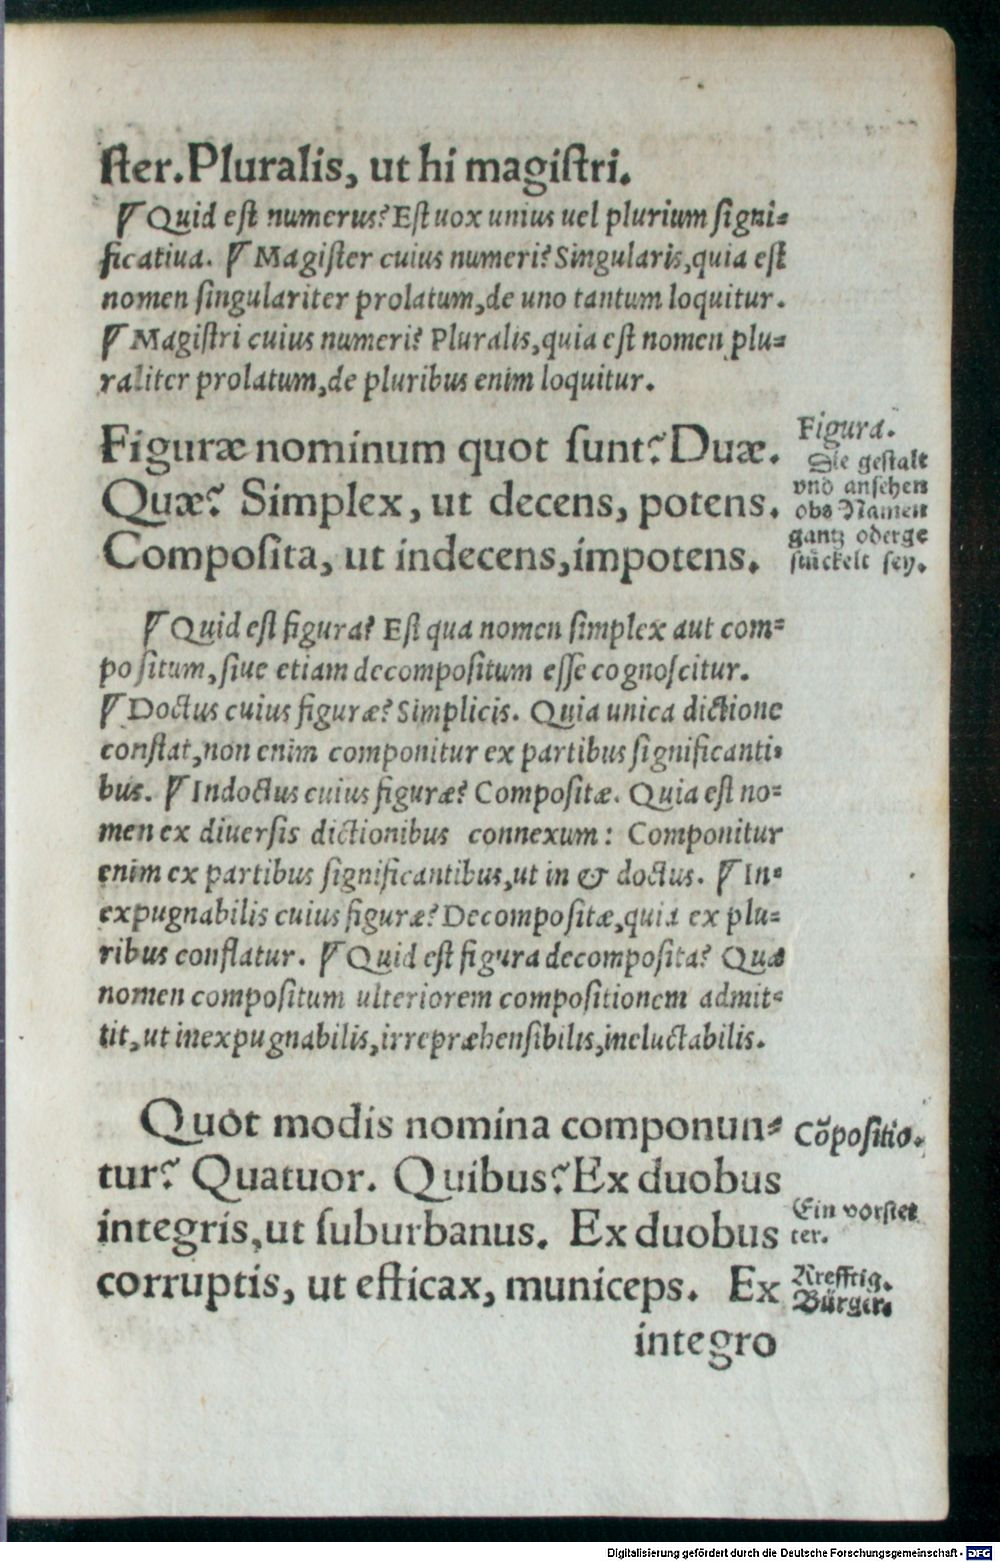 ſter. Pluralis, ut hi magiſtri.
¶ Quid eſt numerus? Eſt uox unius uel plurium ſigni⸗
ficatiua. ¶ Magiſter cuius numeri? Singularis, quia eſt
nomen ſingulariter prolatum, de uno tantum loquitur.
¶ Magiſtri cuius numeri? Pluralis, quia eſt nomen plu⸗
raliter prolatum, de pluribus enim loquitur.
Figuræ nominum quot ſunt? Duæ.
Quæ? Simplex, ut decens, potens.
Compoſita, ut indecens, impotens.
Figura.
Die geſtalt
vnd anſehen
obs Namen
gantz oder ge
ſtückelt ſey.
¶ Quid eſt figura? Eſt qua nomen ſimplex aut com⸗
poſitum, ſiue etiam decompoſitum eſſe cognoſcitur.
¶ Doctus cuius figuræ? Simplicis. Quia unica dictione
conſtat, non enim componitur ex partibus ſignificanti⸗
bus. ¶ Indoctus cuius figuræ? Compoſitæ. Quia eſt no⸗
men ex diuerſis dictionibus connexum: Componitur
enim ex partibus ſignificantibus, ut in & doctus. ¶ In⸗
expugnabilis cuius figuræ? Decompoſitæ, quia ex plu⸗
ribus conflatur. ¶ Quid eſt figura decompoſita? Quæ
nomen compoſitum ulteriorem compoſitionem admit⸗
tit, ut inexpugnabilis, irrepræhenſibilis, ineluctabilis.
Quot modis nomina componun⸗
tur? Quatuor. Quibus? Ex duobus
integris, ut ſuburbanus. Ex duobus
corruptis, ut efficax, municeps. Ex
integro
Cōpoſitio.
Ein vorſtet
ter.
Krefftig.
Bürger.
Digitalisierung gefördert durch die Deutsche Forschungsgemeinschaft - DFG